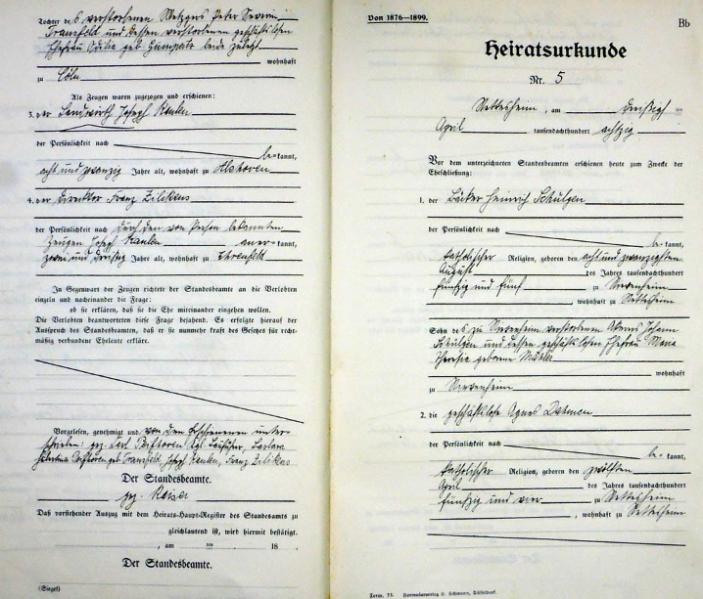 Tochter des verstorbenen Metzgers Peter Severin
und dessen verstorbenen geschäftslosen
Ehefrau Odilia geb. beide zuletzt
wohnhaft
zu Cöln
Als Zeugen waren zugezogen und erschienen:
3. der Landwirth Joseph Kaulen
der Persönlichkeit nach
be-kannt,
acht und zwanzig Jahre alt, wohnhaft zu
4. der Direktor Franz Zilikens
der Persönlichkeit nach durch den von Person bekannten
Zeugen Joseph Kaulen aner-kannt,
zwei und dreißig Jahre alt, wohnhaft zu Ehrenfeld
In Gegenwart der Zeugen richtete der Standesbeamte an die Verlobten
einzeln und nacheinander die Frage:
ob sie erklären, daß sie die Ehe miteinander eingehen wollen.
Die Verlobten beantworteten diese Frage bejahend. Es erfolgte hierauf der
Ausspruch des Standesbeamten, daß er sie nunmehr kraft des Gesetzes für recht-
mäßig verbundene Eheleute erkläre.
Vorgelesen, genehmigt und von den Erschienenen unter-
schrieben: gez. Carl
geb. Joseph Kaulen, Franz Zilikens
Der Standesbeamte.
gez.
Daß vorstehender Auszug mit dem Heirats-Haupt-Register des Standesamts zu
gleichlautend ist, wird hiermit bestätigt.
, am 18
Der Standesbeamte.
(Siegel)
Von 1876—1899.
Bb
Heiratsurkunde
Nr. 5
Nettesheim, am dreißigsten
April tausendachthundert achtzig
Vor dem unterzeichneten Standesbeamten erschienen heute zum Zwecke der
Eheschließung:
1. der Bäcker Heinrich Schülgen
der Persönlichkeit nach
be-kannt,
katholischer Religion, geboren den acht und zwanzigsten
August des Jahres tausendachthundert
fünfzig und fünf zu Nievenheim
, wohnhaft zu Nettesheim
Sohn des zu Nievenheim verstorbenen Johann
Schülgen und dessen geschäftslosen Ehefrau Maria
Theresia geborene
wohnhaft
zu Nievenheim
2. die geschäftslose Agnes
der Persönlichkeit nach
be-kannt,
katholischer Religion, geboren den zwölften
April des Jahres tausendachthundert
fünfzig und vier zu Nettesheim
, wohnhaft zu Nettesheim